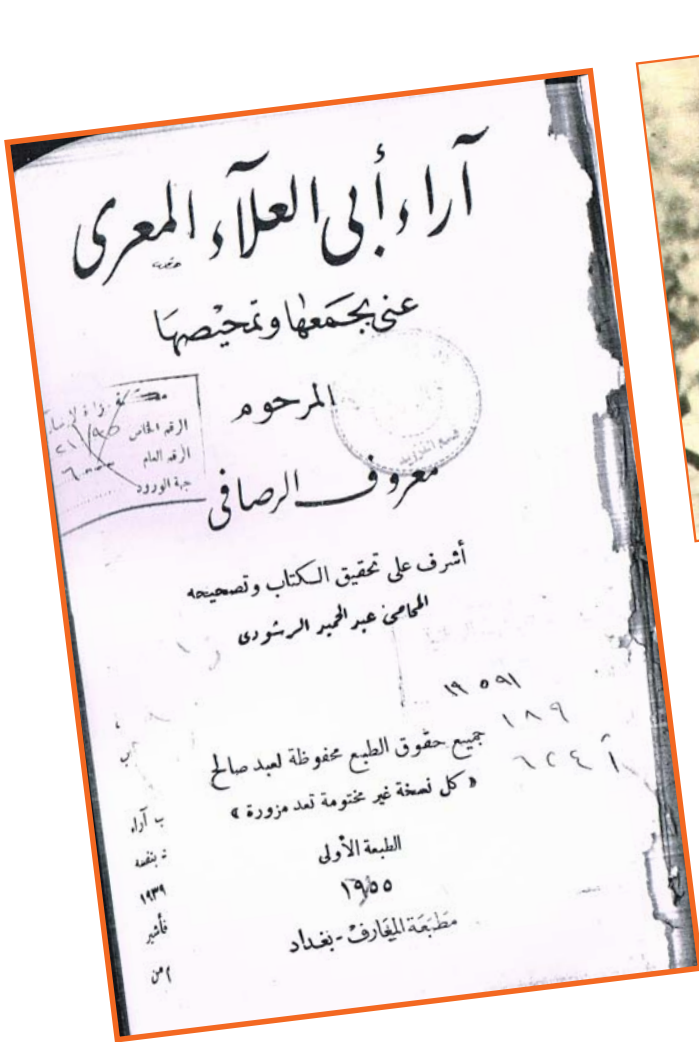 آراء أبي العلآء المعرى
عنى بجمعها وتمحيصها
المرحوم
معروف الرصافي
الرقم الخاص
الرقم العام ٦٠٠٠
جهة الورود
أشرف على تحقيق الكتاب وتصحيحه
المحامى عبد الحميد الرشودى
١٩٥٩١
١٨٩
٦٢٤ أ
جميع حقوق الطبع محفوظة لعبد صالح
« كل نسخة غير مختومة تعد مزورة »
الطبعة الأولى
١٩٥٥
مطبعة المعارف - بغداد
ب آراء
ة بنفسه
١٩٣٩
فأشير